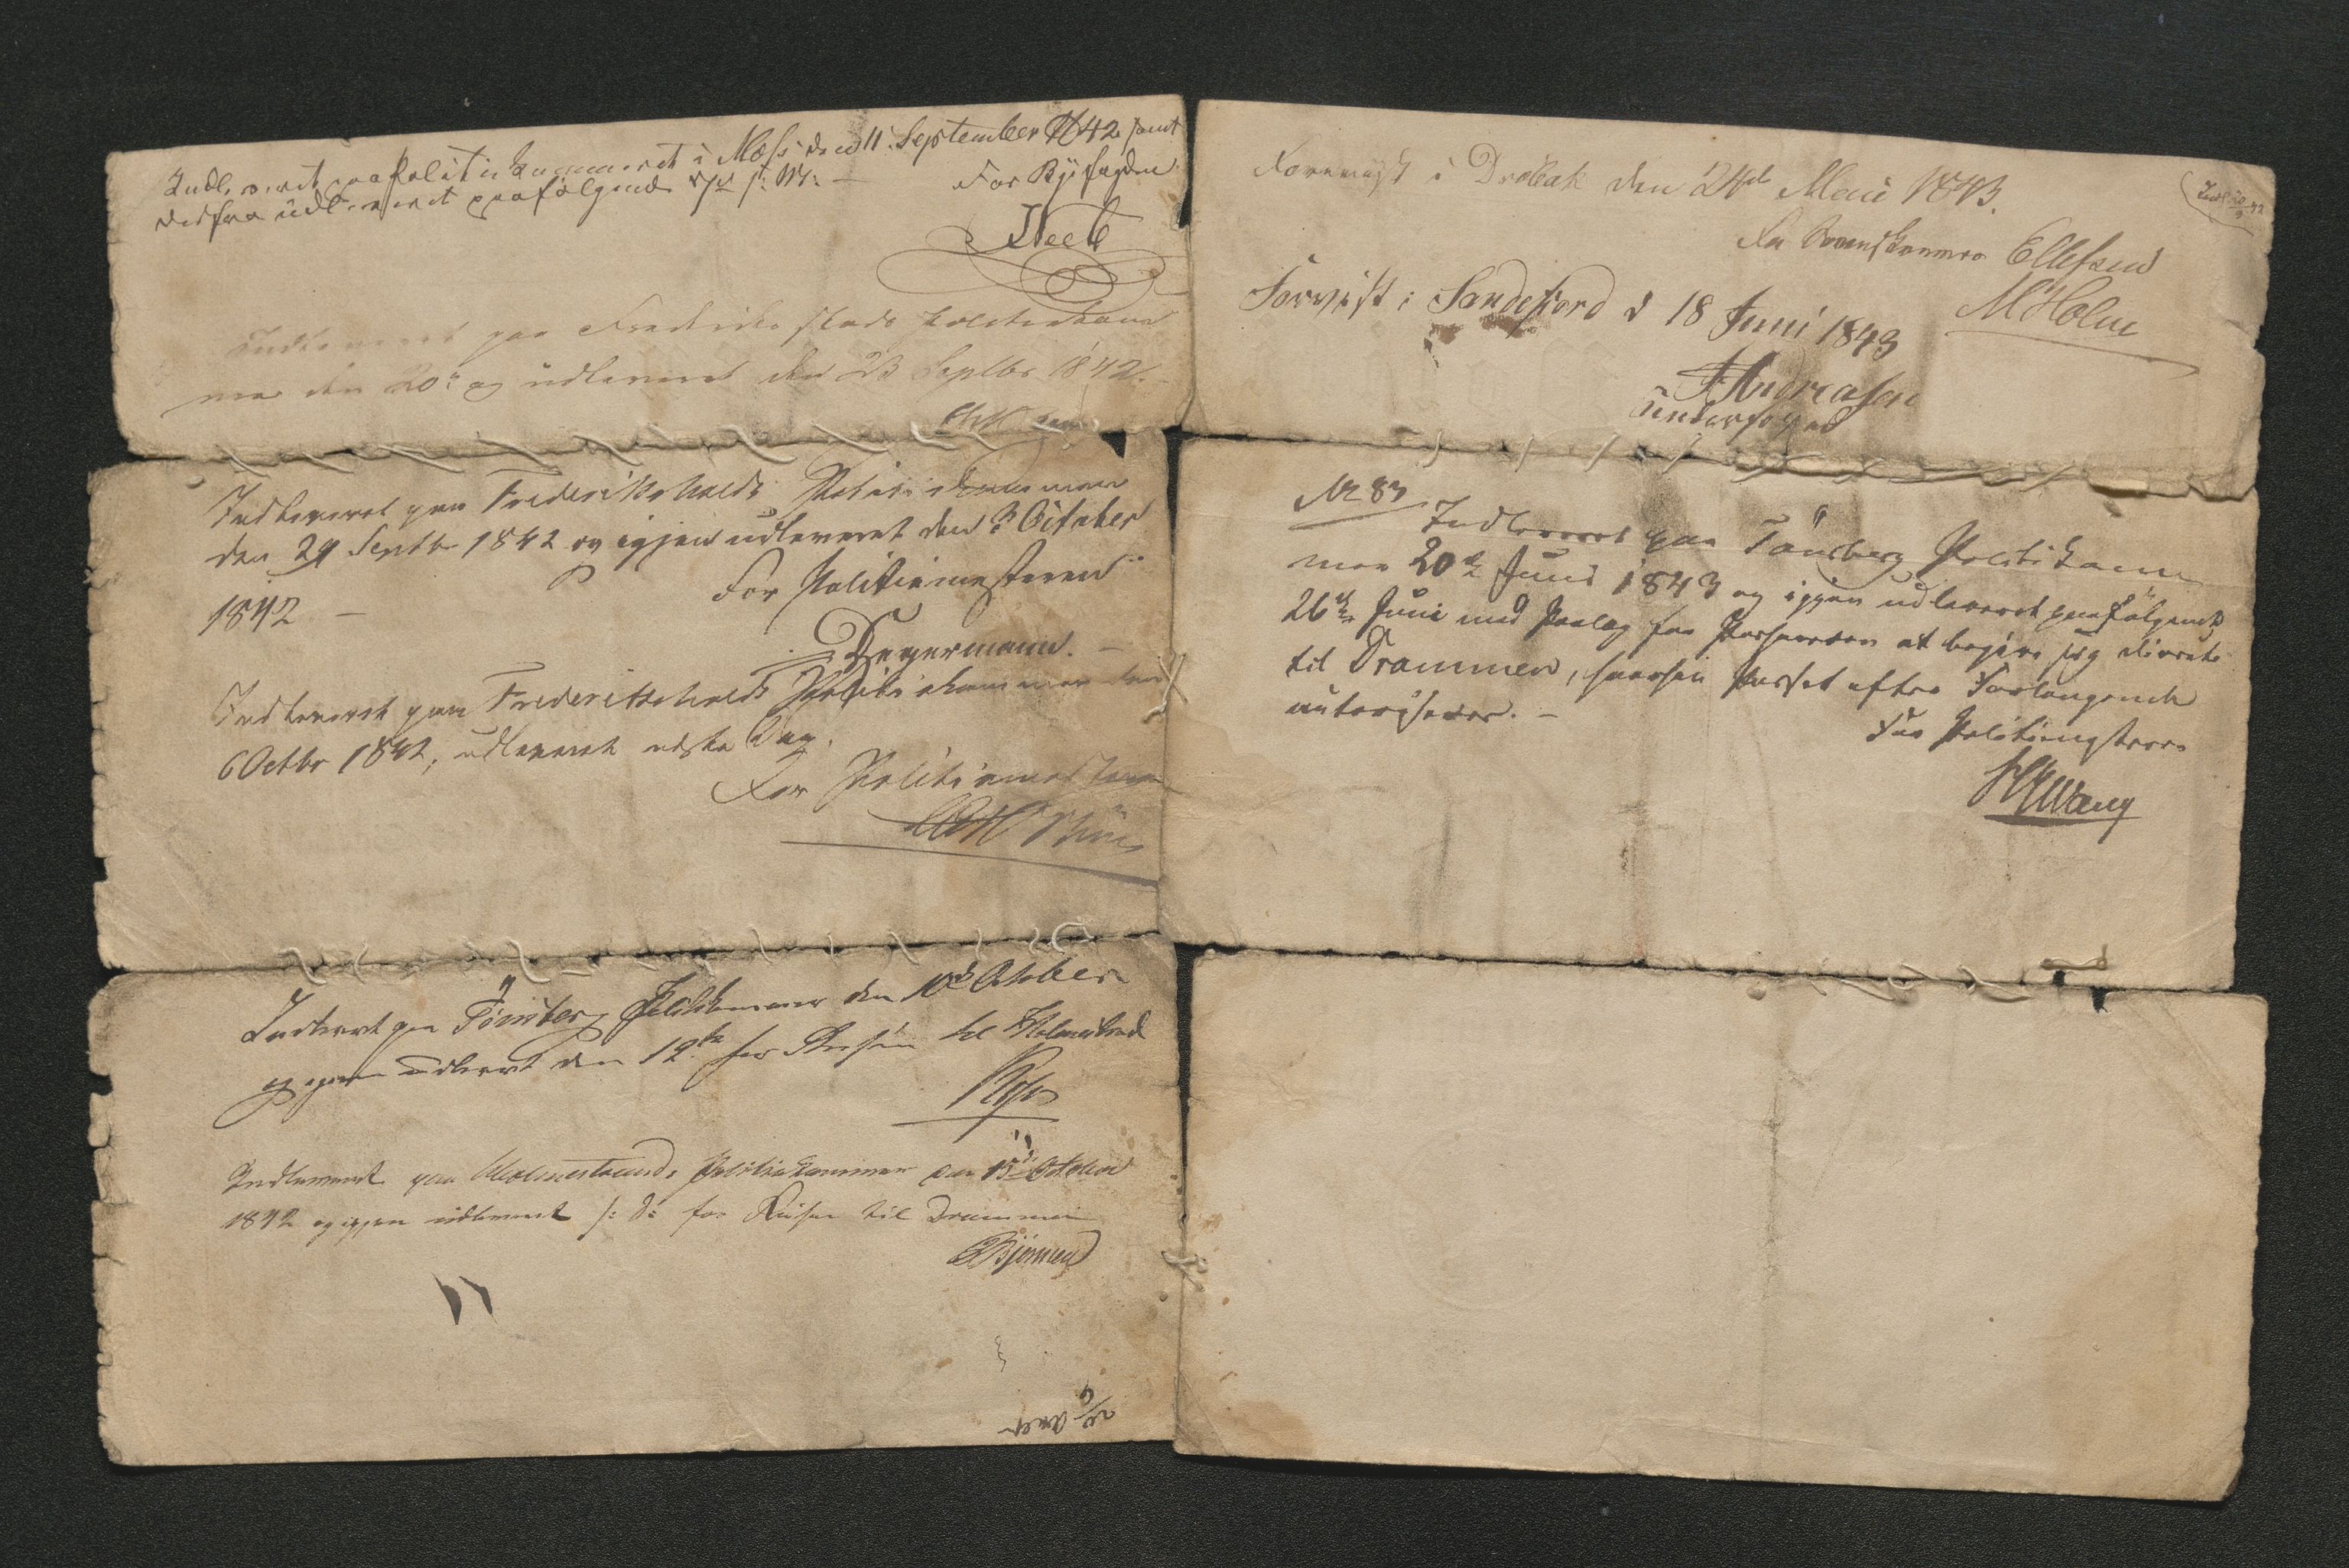 Indleveret paa Politiekammeret i Moss den 11 September 1842 samt
derfra udleveret paafølgende
For Byfogden
Indleveret paa Frederikstads Politiekam
mer den 20de og udleveret den 23 Septbr 1842.
Indleveret paa Frederikshalds Politiekammer
den 29 Septbr 1842 og igjen udleveret den 3 October
1842 –
For Politiemesteren
Segermann. –
Indleveret paa Frederikshalds Politiekammer den
6 Octbr 1842, udleveret næste Dag.
For Politiemesteren
Indlevert paa Tönsberg Politikammer den 10de October
og igjen udlevert den 12te for Reisen til Holmestrand
Indleveret paa Holmestrands Politiekammer den 13de October
1842 og igjen udleveret s: D: for Reisen til Drammen
Bjørnsen
Forevist i Drøbak den 24de Mai 1843.
Ellefsen
M Holm
Forvist i Sandefiord d 18 Juni 1843
Andreasen
Underfoged
No 83
Indleveret paa Tönsberg Politikam
mer 20de Juni 1843 og igjen udleveret paafølgende
26de Juni med Paalæg for Passhaveren at begive sig directe
til Drammen, hvorhen Passet efter Forlangende
autoriseres. –
For Politimesteren